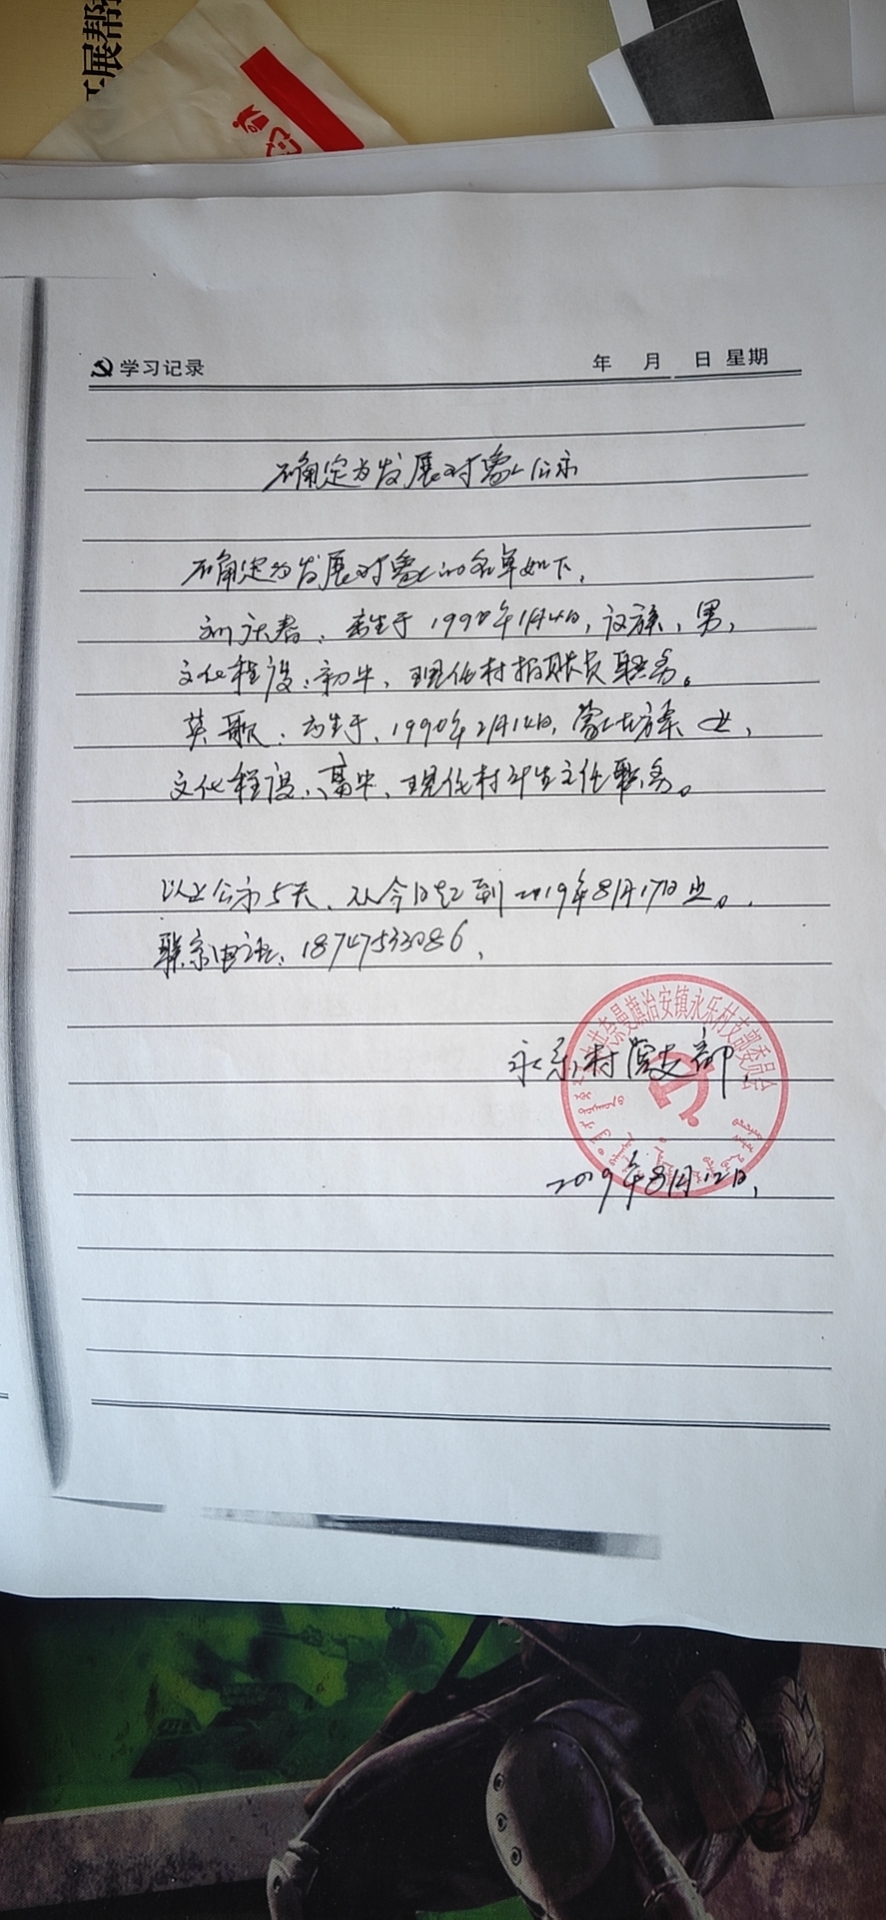 展帮
学习记录 年 月 日 星期
确定为发展对象公示
确定为发展对象的名单如下,
刘庆春:出生于1990年1月4日,汉族,男,
文化程度:初中,现任村报账员职务。
英歌:出生于,1990年2月14日,蒙古族 女,
文化程度:高中,现任村计生主任职务。
以上公示5天,从今日起到2019年8月17日止。
联系电话:18747533086,
奈曼旗治安镇永乐村支部委员会
永乐村党支部
2019年8月12日,